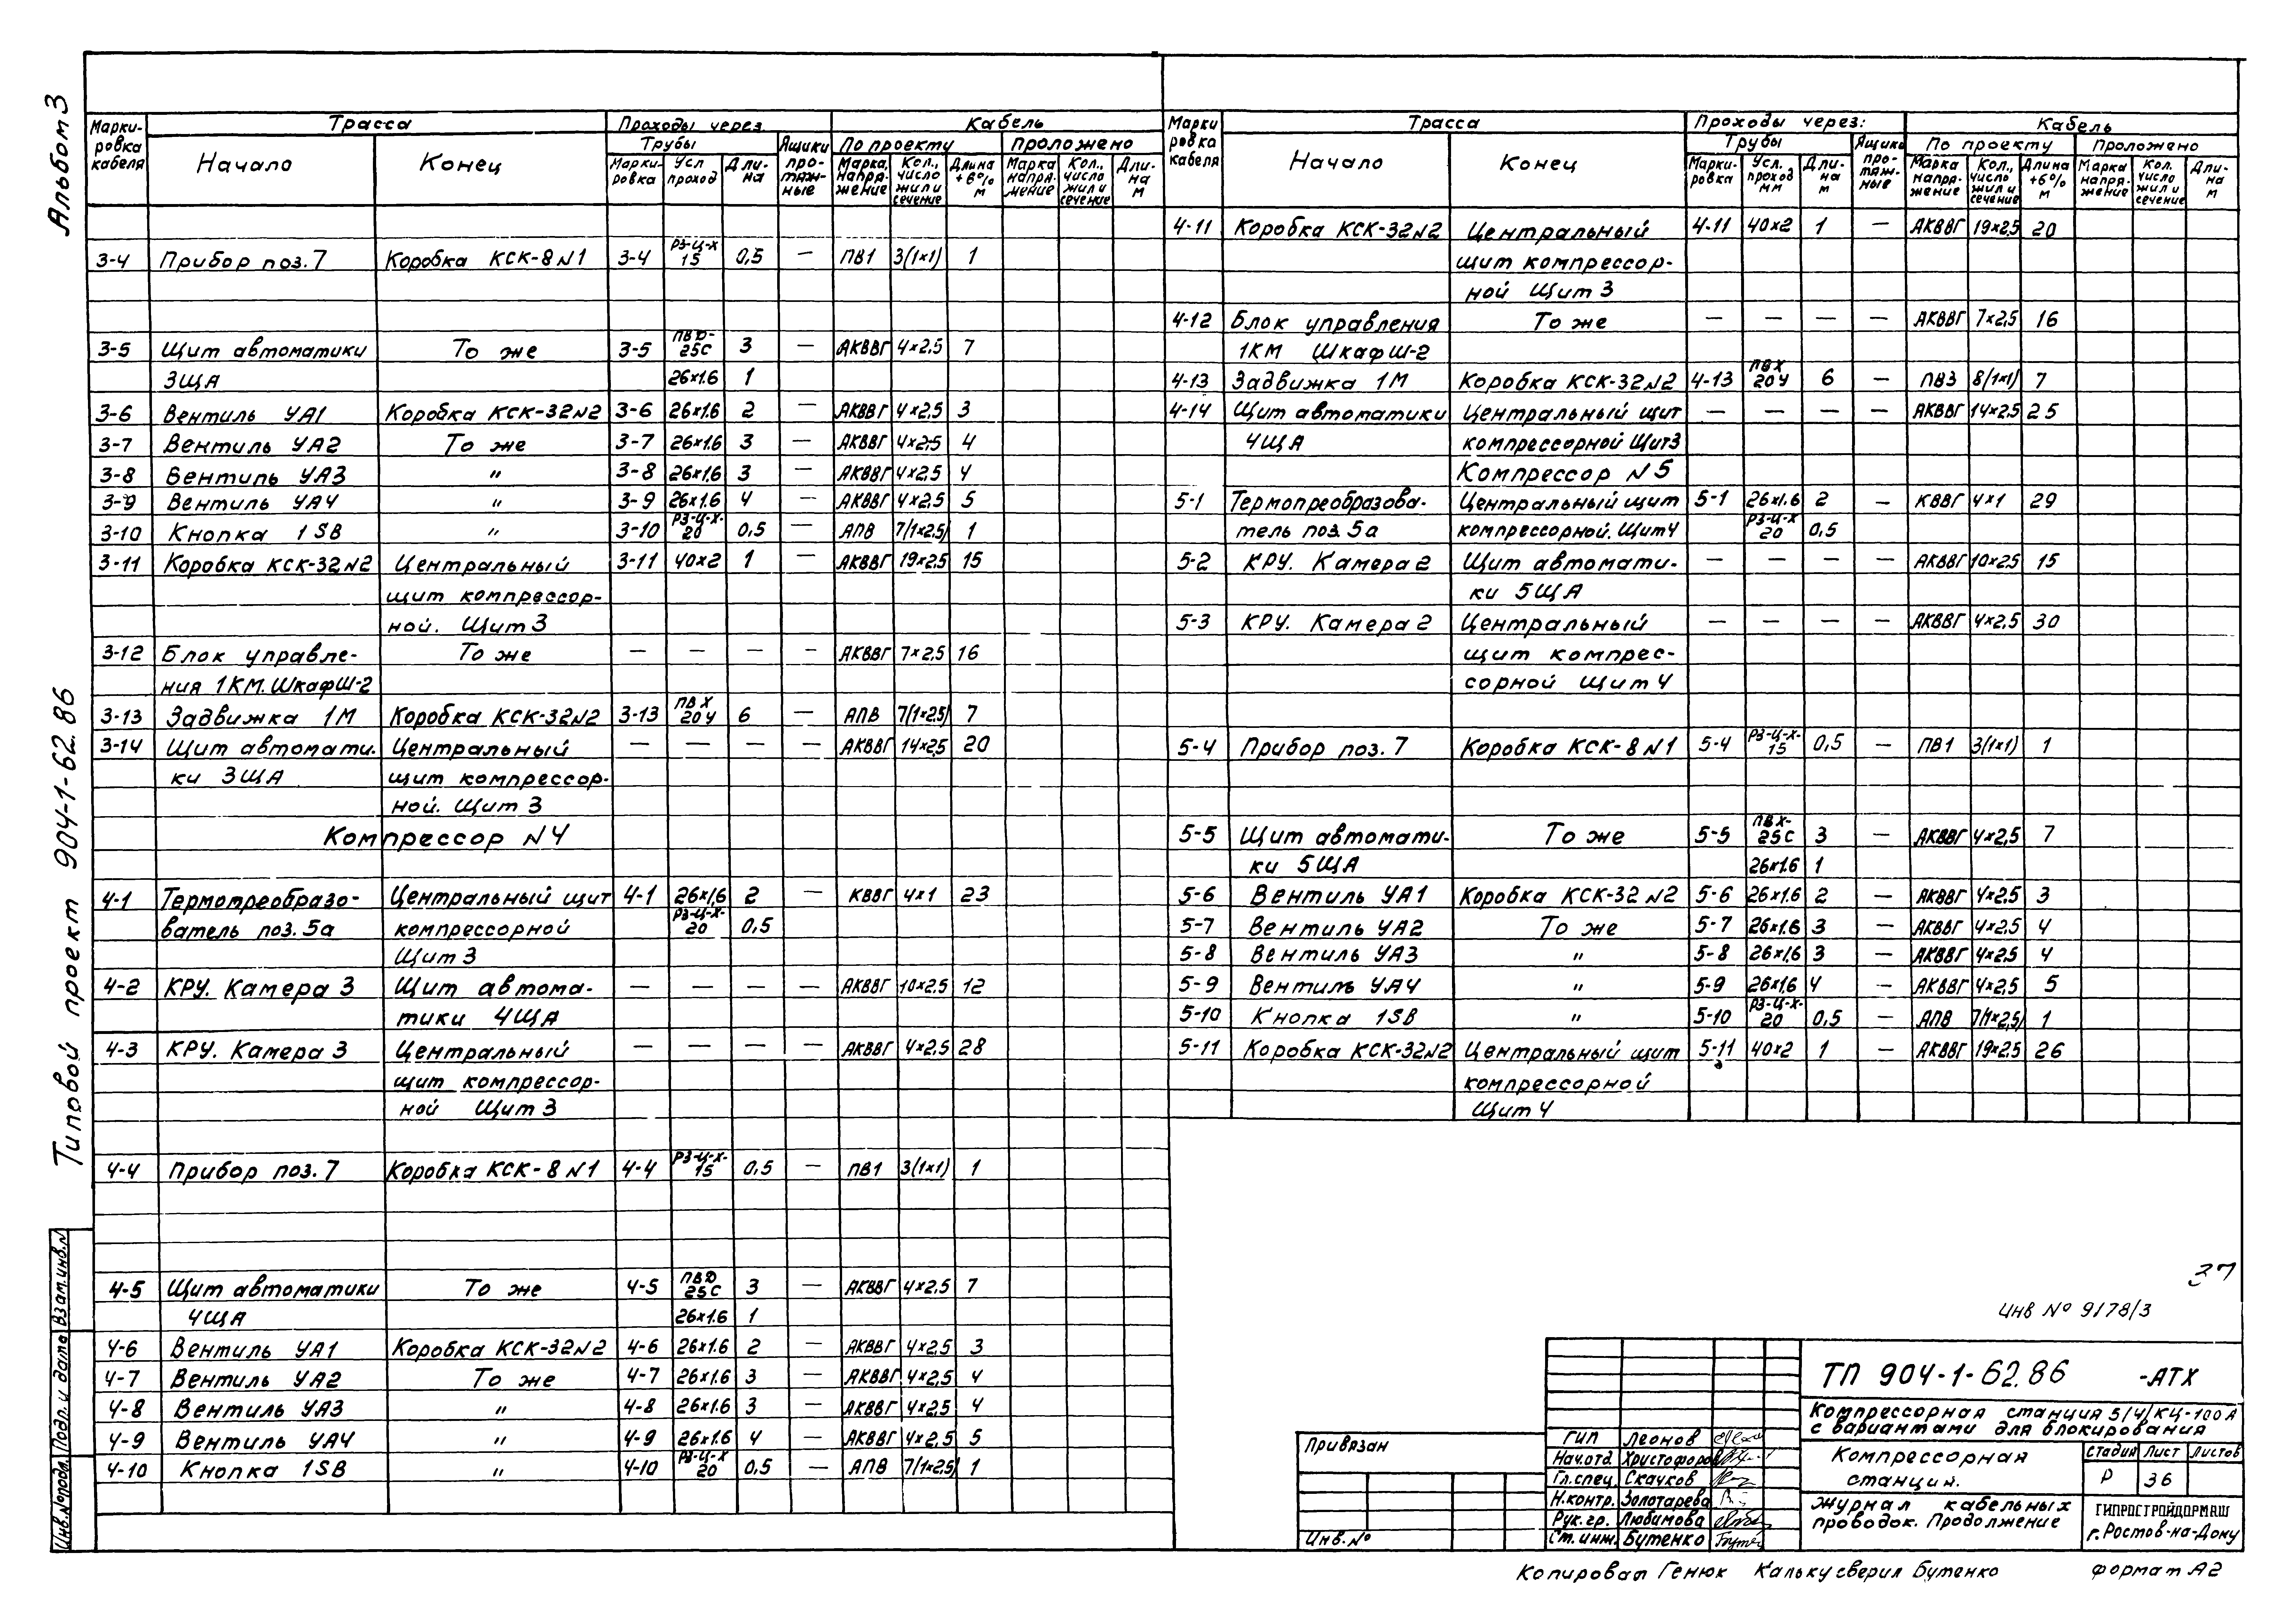 Альбом 3
Типовой проект 904-1-62.86
Марки-ровка кабеля | Трасса | Проходы через | Кабель
Начало | Конец | Трубы | Ящики про-тяж-ные | По проекту | Проложено
Марки-ровка | Усл проход | Дли-на | Марка, напря-жение | Кол., число жил и сечение | Длина +6% м | Марка напря-жение | Кол., число жил и сечение | Дли-на м
3-4 Прибор поз. 7 Коробка КСК-8 N1 3-4 РЗ-Ц-Х 15 0,5 — ПВ1 3(1×1) 1
3-5 Щит автоматики То же 3-5 ПВД-25С 3 — АКВВГ 4×2,5 7
3ЩА 26×1.6 1
3-6 Вентиль УА1 Коробка КСК-32 N2 3-6 26×1.6 2 — АКВВГ 4×2,5 3
3-7 Вентиль УА2 То же 3-7 26×1.6 3 — АКВВГ 4×2,5 4
3-8 Вентиль УА3 " 3-8 26×1.6 3 — АКВВГ 4×2,5 4
3-9 Вентиль УА4 " 3-9 26×1.6 4 — АКВВГ 4×2,5 5
3-10 Кнопка 1SB " 3-10 РЗ-Ц-Х-20 0,5 — АПВ 7(1×2,5) 1
3-11 Коробка КСК-32 N2 Центральный 3-11 40×2 1 — АКВВГ 19×2,5 15
щит компрессор-
ной. Щит 3
3-12 Блок управле- То же — — — — АКВВГ 7×2,5 16
ния 1КМ. Шкаф Ш-2
3-13 Задвижка 1М Коробка КСК-32 N2 3-13 ПВХ 20У 6 — АПВ 7(1×2,5) 7
3-14 Щит автомати. Центральный — — — — АКВВГ 14×2,5 20
ки 3ЩА щит компрессор-
ной. Щит 3
Компрессор N4
4-1 Термотреобразо- Центральный щит 4-1 26×1,6 2 — КВВГ 4×1 23
ватель поз. 5а компрессорной РЗ-Ц-Х-20 0,5
Щит 3
4-2 КРУ. Камера 3 Щит автома- — — — — АКВВГ 10×2,5 12
тики 4ЩА
4-3 КРУ. Камера 3 Центральный — — — — АКВВГ 4×2,5 28
щит компрессор-
ной Щит 3
4-4 Прибор поз. 7 Коробка КСК-8 N1 4-4 РЗ-Ц-Х-15 0,5 — ПВ1 3(1×1) 1
4-5 Щит автоматики То же 4-5 ПВД 25С 3 — АКВВГ 4×2,5 7
4ЩА 26×1.6 1
4-6 Вентиль УА1 Коробка КСК-32 N2 4-6 26×1.6 2 — АКВВГ 4×2,5 3
4-7 Вентиль УА2 То же 4-7 26×1.6 3 — АКВВГ 4×2,5 4
4-8 Вентиль УА3 " 4-8 26×1.6 3 — АКВВГ 4×2,5 4
4-9 Вентиль УА4 " 4-9 26×1.6 4 — АКВВГ 4×2,5 5
4-10 Кнопка 1SB " 4-10 РЗ-Ц-Х 20 0,5 — АПВ 7(1×2,5) 1
Марки ровка кабеля | Трасса | Проходы через: | Кабель
Начало | Конец | Трубы | Ящики про-тяж-ные | По проекту | Проложено
Марки-ровка | Усл. проход мм | Дли-на м | Марка напря-жение | Кол., число жил и сечение | Длина +6% м | Марка напря-жение | Кол. число жил и сечение | Дли-на м
4-11 Коробка КСК-32 N2 Центральный 4-11 40×2 1 — АКВВГ 19×2,5 20
щит компрессор-
ной Щит 3
4-12 Блок управления То же — — — — АКВВГ 7×2,5 16
1КМ Шкаф Ш-2
4-13 Задвижка 1М Коробка КСК-32 N2 4-13 ПВХ 20У 6 — ПВ3 8(1×1) 7
4-14 Щит автоматики Центральный щит — — — — АКВВГ 14×2,5 25
4ЩА компрессорной Щит 3
Компрессор N5
5-1 Термопреобразова- Центральный щит 5-1 26×1.6 2 — КВВГ 4×1 29
тель поз. 5а компрессорной. Щит 4 РЗ-Ц-Х 20 0,5
5-2 КРУ. Камера 2 Щит автомати- — — — — АКВВГ 10×2,5 15
ки 5ЩА
5-3 КРУ. Камера 2 Центральный — — — — АКВВГ 4×2,5 30
щит компрес-
сорной Щит 4
5-4 Прибор поз. 7 Коробка КСК-8 N1 5-4 РЗ-Ц-Х-15 0,5 — ПВ1 3(1×1) 1
5-5 Щит автомати- То же 5-5 ПВХ-25С 3 — АКВВГ 4×2,5 7
ки 5ЩА 26×1.6 1
5-6 Вентиль УА1 Коробка КСК-32 N2 5-6 26×1.6 2 — АКВВГ 4×2,5 3
5-7 Вентиль УА2 То же 5-7 26×1.6 3 — АКВВГ 4×2,5 4
5-8 Вентиль УА3 " 5-8 26×1,6 3 — АКВВГ 4×2,5 4
5-9 Вентиль УА4 " 5-9 26×1,6 4 — АКВВГ 4×2,5 5
5-10 Кнопка 1SB " 5-10 РЗ-Ц-Х-20 0,5 — АПВ 7(1×2,5) 1
5-11 Коробка КСК-32 N2 Центральный щит 5-11 40×2 1 — АКВВГ 19×2,5 26
компрессорной
Щит 4
37
Инв № 9178/3
ТП 904-1-62.86 -АТХ
Компрессорная станция 5/4/КЦ-100А
с вариантами для блокирования
Компрессорная
станция.
Стадия Лист Листов
Р 36
Журнал кабельных
проводок. Продолжение
ГИПРОСТРОЙДОРМАШ
г. Ростов-на-Дону
ГИП Леонов
Нач.отд. Христофоров
Гл.спец. Скачков
Н.контр. Золотарева
Рук.гр. Любимова
Ст.инж. Бутенко
Привязан
Инв. №
Инв.№подл. Подп. и дата Взам.инв.N
Копировал Генюк Кальку сверил Бутенко формат А2